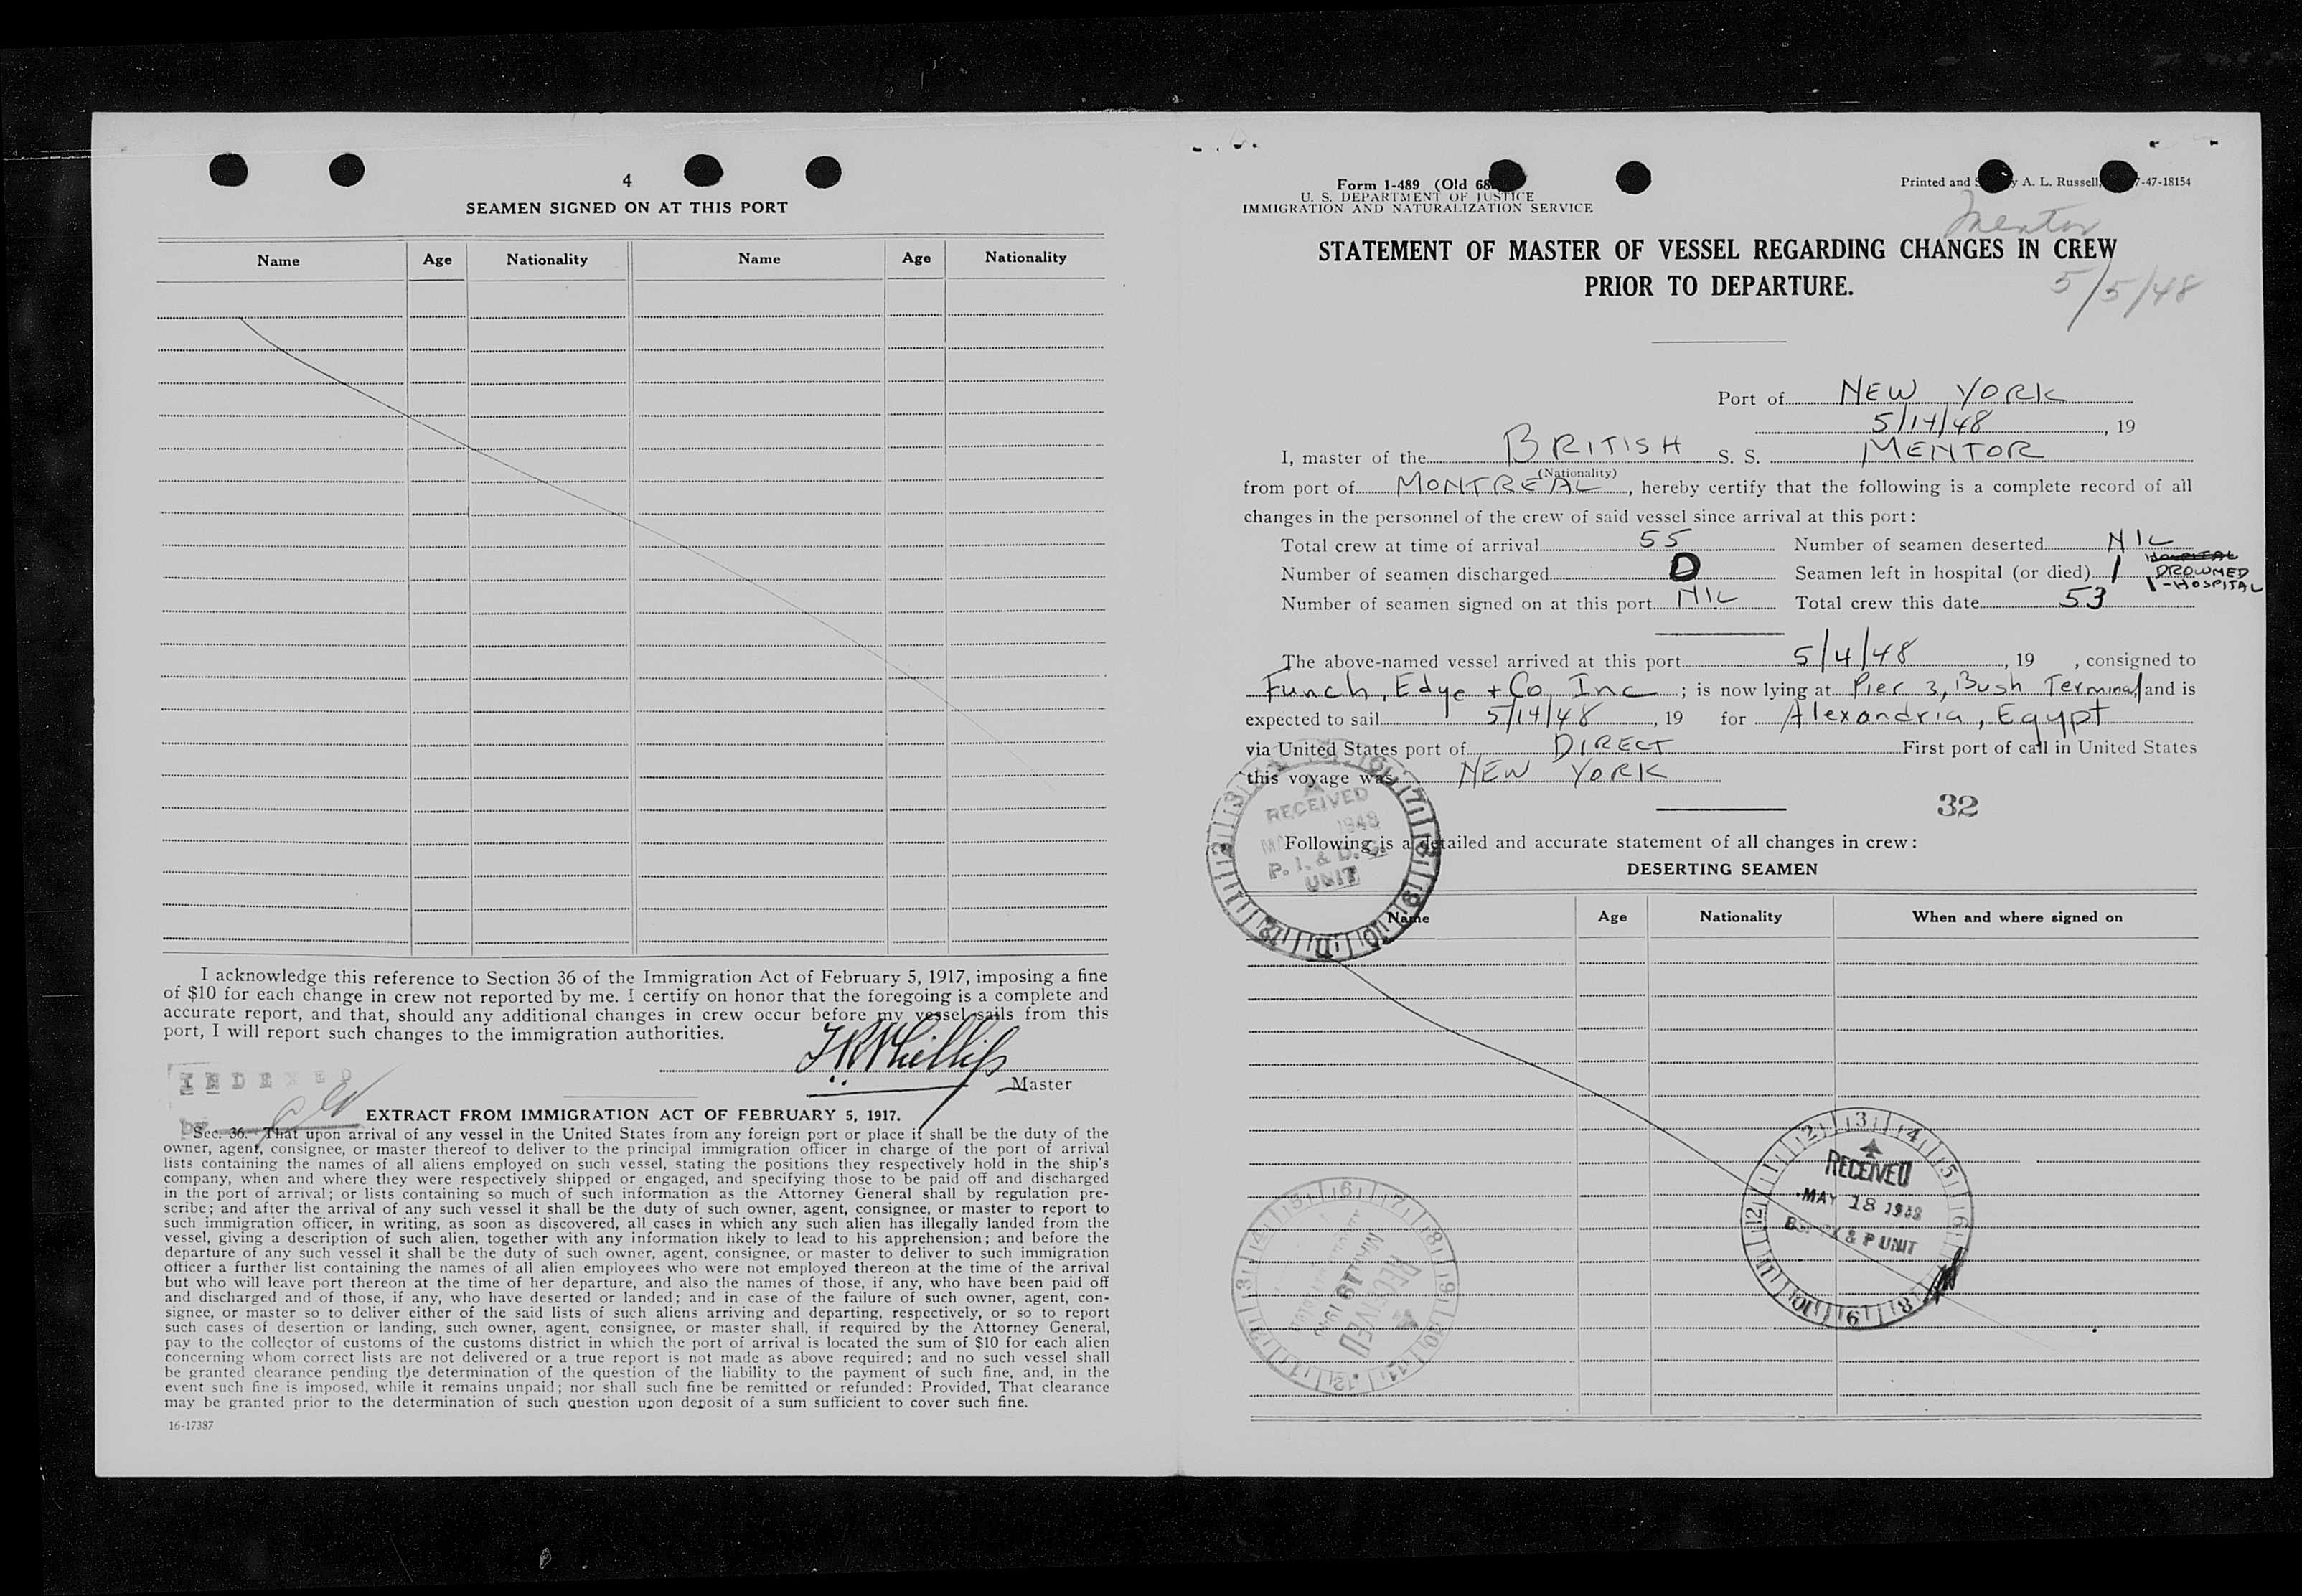 4
SEAMEN SIGNED ON AT THIS PORT
Name Age Nationality Name Age Nationality
I acknowledge this reference to Section 36 of the Immigration Act of February 5, 1917, imposing a fine
of $10 for each change in crew not reported by me. I certify on honor that the foregoing is a complete and
accurate report, and that, should any additional changes in crew occur before my vessel sails from this
port, I will report such changes to the immigration authorities.
Phillips
Master
INDEXED
by
EXTRACT FROM IMMIGRATION ACT OF FEBRUARY 5, 1917.
Sec. 36. That upon arrival of any vessel in the United States from any foreign port or place it shall be the duty of the
owner, agent, consignee, or master thereof to deliver to the principal immigration officer in charge of the port of arrival
lists containing the names of all aliens employed on such vessel, stating the positions they respectively hold in the ship's
company, when and where they were respectively shipped or engaged, and specifying those to be paid off and discharged
in the port of arrival; or lists containing so much of such information as the Attorney General shall by regulation pre-
scribe; and after the arrival of any such vessel it shall be the duty of such owner, agent, consignee, or master to report to
such immigration officer, in writing, as soon as discovered, all cases in which any such alien has illegally landed from the
vessel, giving a description of such alien, together with any information likely to lead to his apprehension; and before the
departure of any such vessel it shall be the duty of such owner, agent, consignee, or master to deliver to such immigration
officer a further list containing the names of all alien employees who were not employed thereon at the time of the arrival
but who will leave port thereon at the time of her departure, and also the names of those, if any, who have been paid off
and discharged and of those, if any, who have deserted or landed; and in case of the failure of such owner, agent, con-
signee, or master so to deliver either of the said lists of such aliens arriving and departing, respectively, or so to report
such cases of desertion or landing, such owner, agent, consignee, or master shall, if required by the Attorney General,
pay to the collector of customs of the customs district in which the port of arrival is located the sum of $10 for each alien
concerning whom correct lists are not delivered or a true report is not made as above required; and no such vessel shall
be granted clearance pending the determination of the question of the liability to the payment of such fine, and, in the
event such fine is imposed, while it remains unpaid; nor shall such fine be remitted or refunded: Provided, That clearance
may be granted prior to the determination of such question upon deposit of a sum sufficient to cover such fine.
16-17387
Form 1-489 (Old 68
U. S. DEPARTMENT OF JUSTICE
IMMIGRATION AND NATURALIZATION SERVICE
Printed and y A. L. Russell, 7-47-18154
Mentor
STATEMENT OF MASTER OF VESSEL REGARDING CHANGES IN CREW
PRIOR TO DEPARTURE.
5/5/48
Port of NEW YORK
5/14/48, 19
I, master of the BRITISH S. S. MENTOR
(Nationality)
from port of MONTREAL, hereby certify that the following is a complete record of all
changes in the personnel of the crew of said vessel since arrival at this port:
Total crew at time of arrival 55 Number of seamen deserted NIL
HOSPITAL
Number of seamen discharged 0 Seamen left in hospital (or died) 1 DROWNED
1-HOSPITAL
Number of seamen signed on at this port NIL Total crew this date 53
The above-named vessel arrived at this port 5/4/48, 19 , consigned to
Funch, Edye + Co, Inc; is now lying at Pier 3, Bush Terminal, and is
expected to sail 5/14/48, 19 for Alexandria, Egypt
via United States port of DIRECT First port of call in United States
this voyage was NEW YORK
32
RECEIVED
1948
P. I. & D. S.
UNIT
Following is a detailed and accurate statement of all changes in crew:
DESERTING SEAMEN
Name Age Nationality When and where signed on
RECEIVED
MAY 18 1948
& P UNIT
RECEIVED